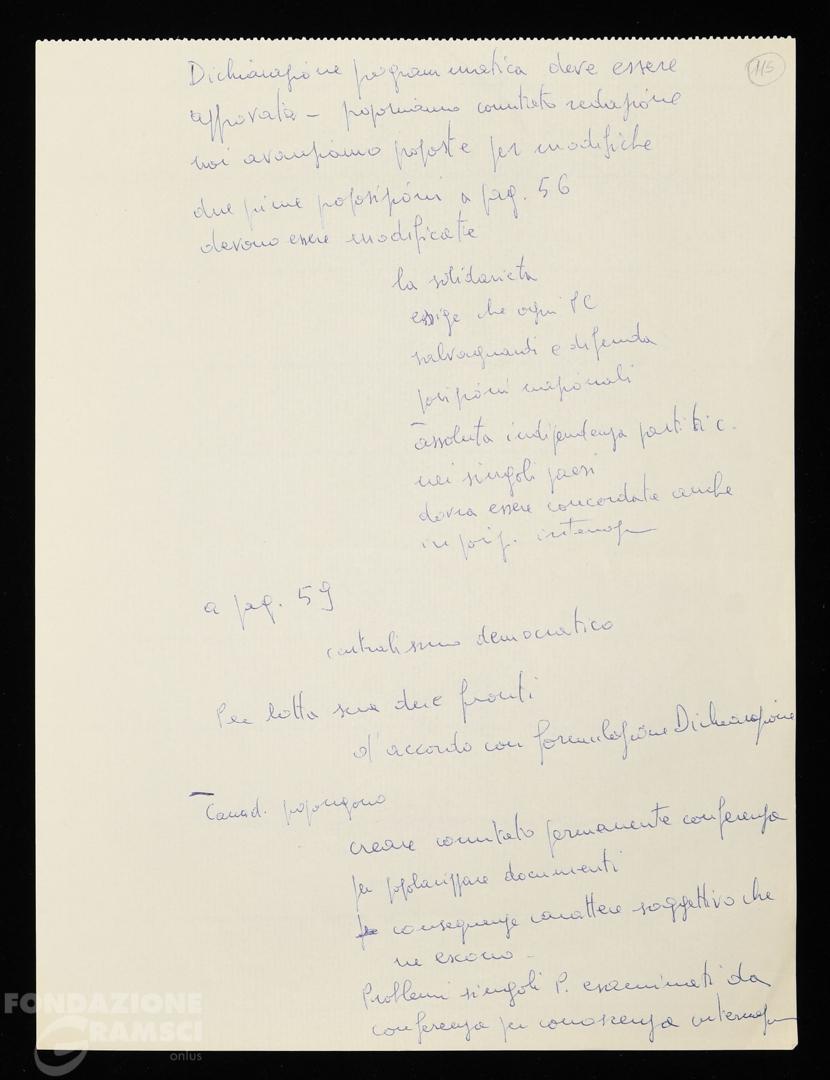 115
Dichiarazione programmatica deve essere
approvata – proponiamo comitato redazione
noi avanziamo proposte per modifiche
due prime proposizioni a pag. 56
devono essere modificate
la solidarietà
esige che ogni PC
salvaguardi e difenda
posizioni nazionali
assoluta indipendenza partiti c.
nei singoli paesi
dovrà essere concordata anche
in posiz. internaz
a pag. 59
centralismo democratico
Per lotta su due fronti
d'accordo con formulazione Dichiarazione
– Canad. propongono
creare comitato permanente conferenza
per popolarizzare documenti
conseguenze carattere soggettivo che
ne escono –
Problemi singoli P. esaminati da
conferenza per conoscenza internaz
FONDAZIONE
GRAMSCI
onlus